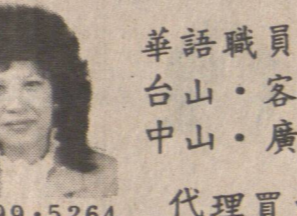 華語職員
台山·客
中山·廣
99·5264
代理買